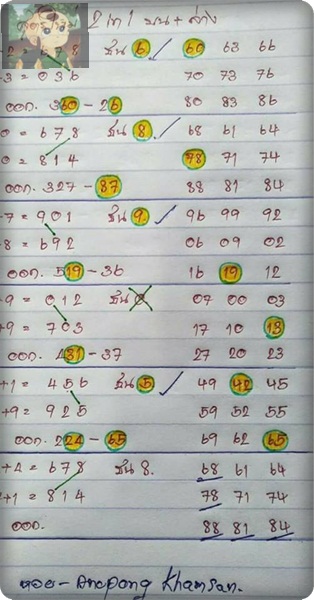 2 in 1 บน + ล่าง
8 ชน 6 ✓ 60 63 66
-3 = 036 70 73 76
ออก. 360 - 26 80 83 86
0 = 678 ชน 8. ✓ 68 61 64
0 = 814 78 71 74
ออก. 327 - 87 88 81 84
-7 = 901 ชน 9. ✓ 96 99 92
-8 = 692 06 09 02
ออก. 519 - 36 16 19 12
-9 = 012 ชน 07 00 03
+9 = 703 17 10 13
ออก. 481 - 37 27 20 23
+1 = 456 ชน 5 ✓ 49 42 45
+9 = 925 59 52 55
ออก. 224 - 65 69 62 65
+4 = 678 ชน 8. 68 61 64
+1 = 814 78 71 74
ออก. 88 81 84
Khamsan.